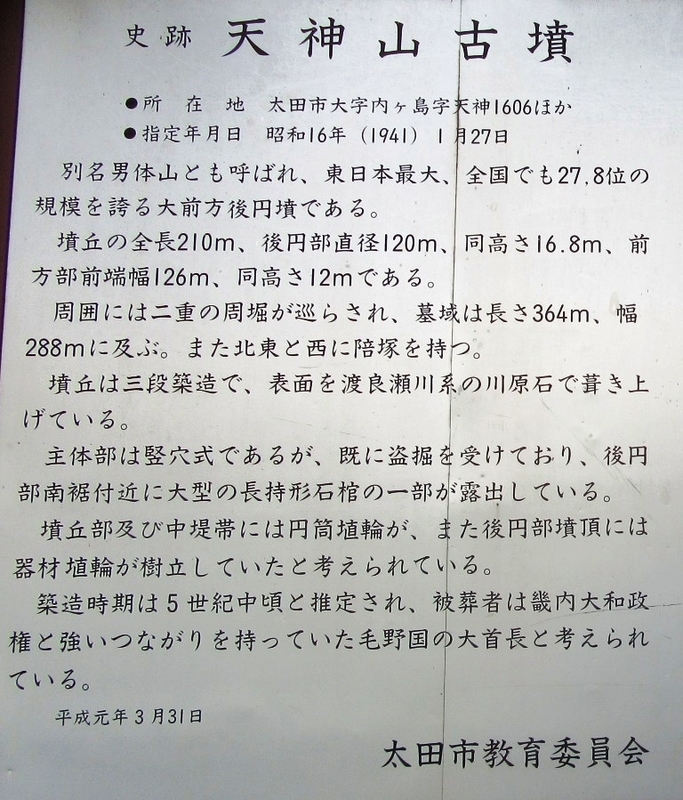 史跡 天神山古墳
●所 在 地 太田市大字内ヶ島字天神1606ほか
●指定年月日 昭和16年（1941）1月27日
別名男体山とも呼ばれ、東日本最大、全国でも27,8位の
規模を誇る大前方後円墳である。
墳丘の全長210m、後円部直径120m、同高さ16.8m、前
方部前端幅126m、同高さ12mである。
周囲には二重の周堀が巡らされ、墓域は長さ364m、幅
288mに及ぶ。また北東と西に陪塚を持つ。
墳丘は三段築造で、表面を渡良瀬川系の川原石で葺き上
げている。
主体部は竪穴式であるが、既に盗掘を受けており、後円
部南裾付近に大型の長持形石棺の一部が露出している。
墳丘部及び中堤帯には円筒埴輪が、また後円部墳頂には
器材埴輪が樹立していたと考えられている。
築造時期は5世紀中頃と推定され、被葬者は畿内大和政
権と強いつながりを持っていた毛野国の大首長と考えられ
ている。
平成元年3月31日
太田市教育委員会